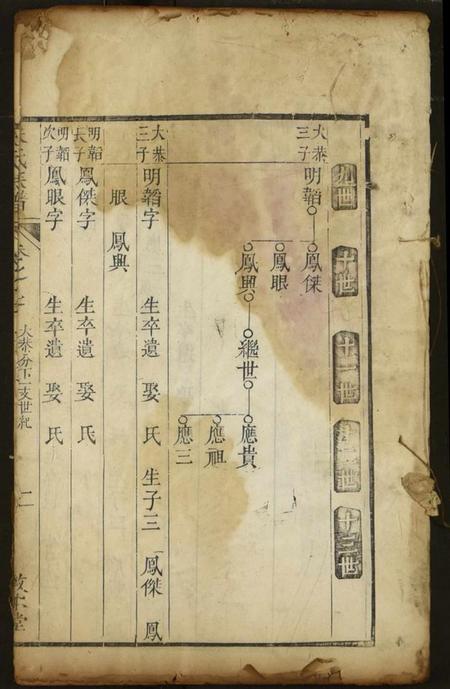 九世 十世 十一世 十二世 十三世
大恭三子 明韜 鳳傑
鳳眼
鳳興 繼世 應貴
應祖
應三
大恭三子 明韜字 生卒遺 娶 氏 生子三 鳳傑 鳳
眼 鳳興
明韜長子 鳳傑字 生卒遺 娶 氏
明韜次子 鳳眼字 生卒遺 娶 氏
氏族譜 卷 大恭分下一支世紀 二 敦本堂